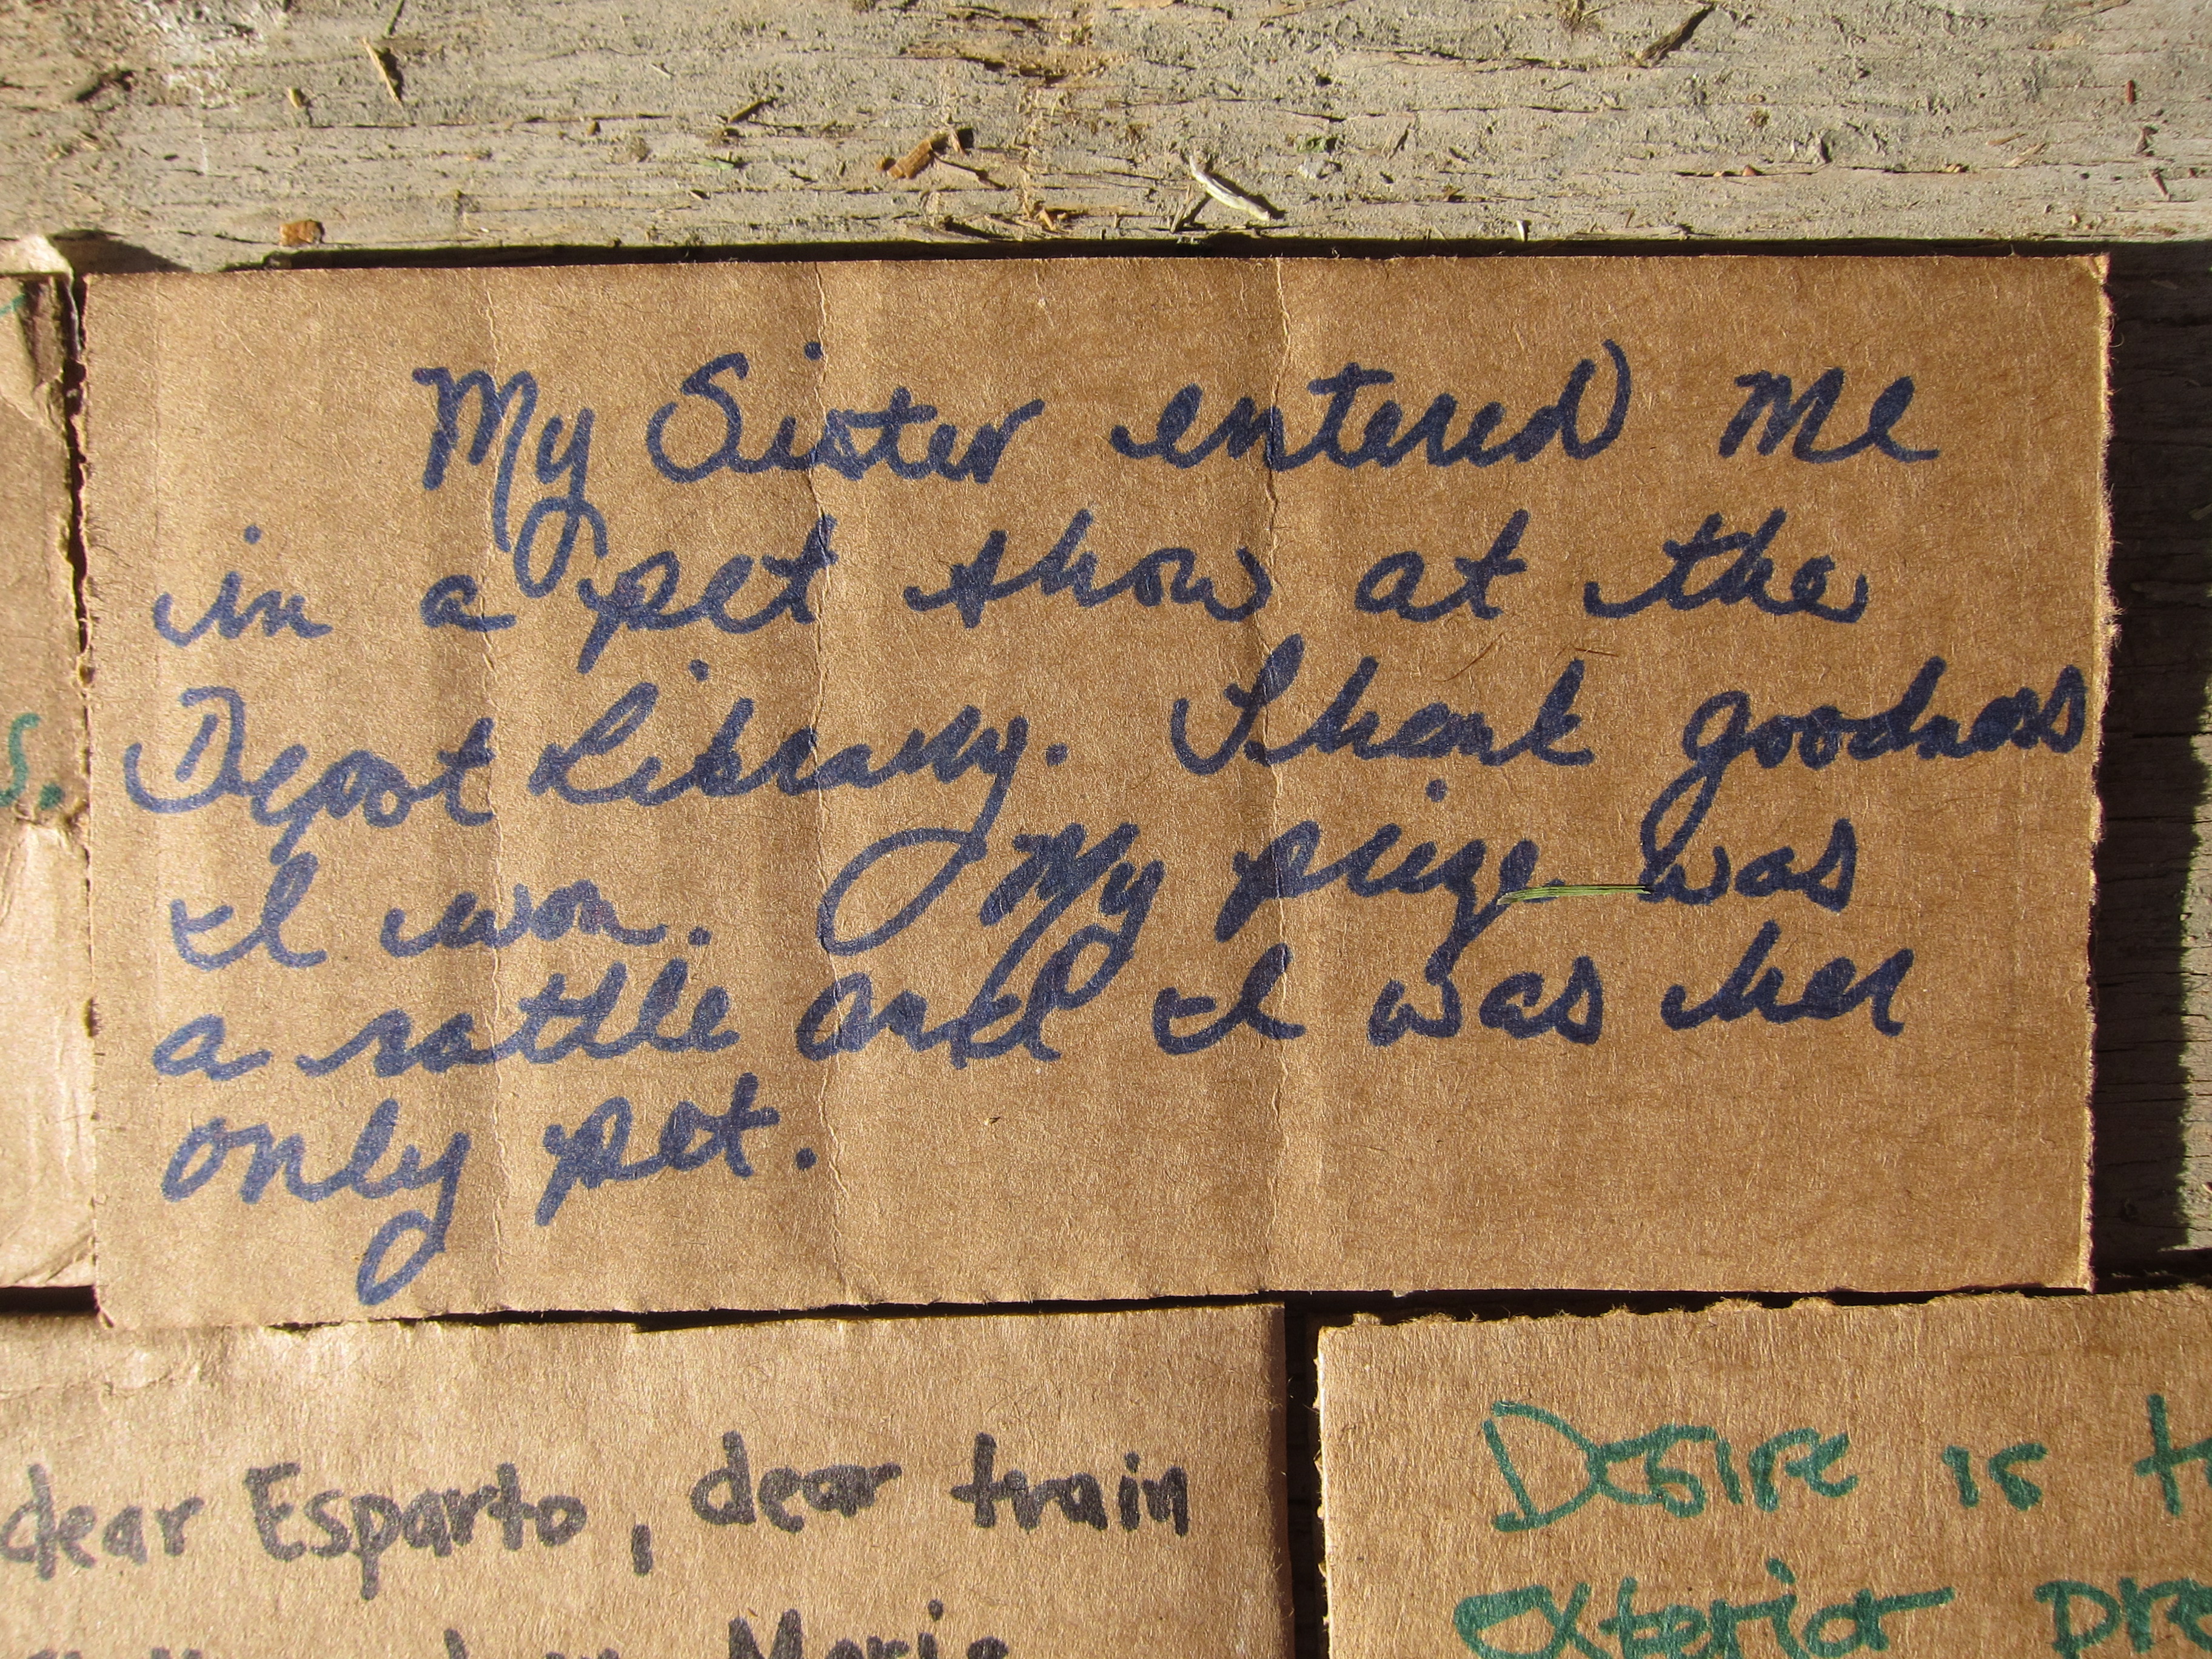 My Sister entered me
in a pet show at the
Depot Library. Thank goodness
I won. My prize was
a rattle and I was her
only pet.
s.
dear Esparto, dear train
Desire is
exterior